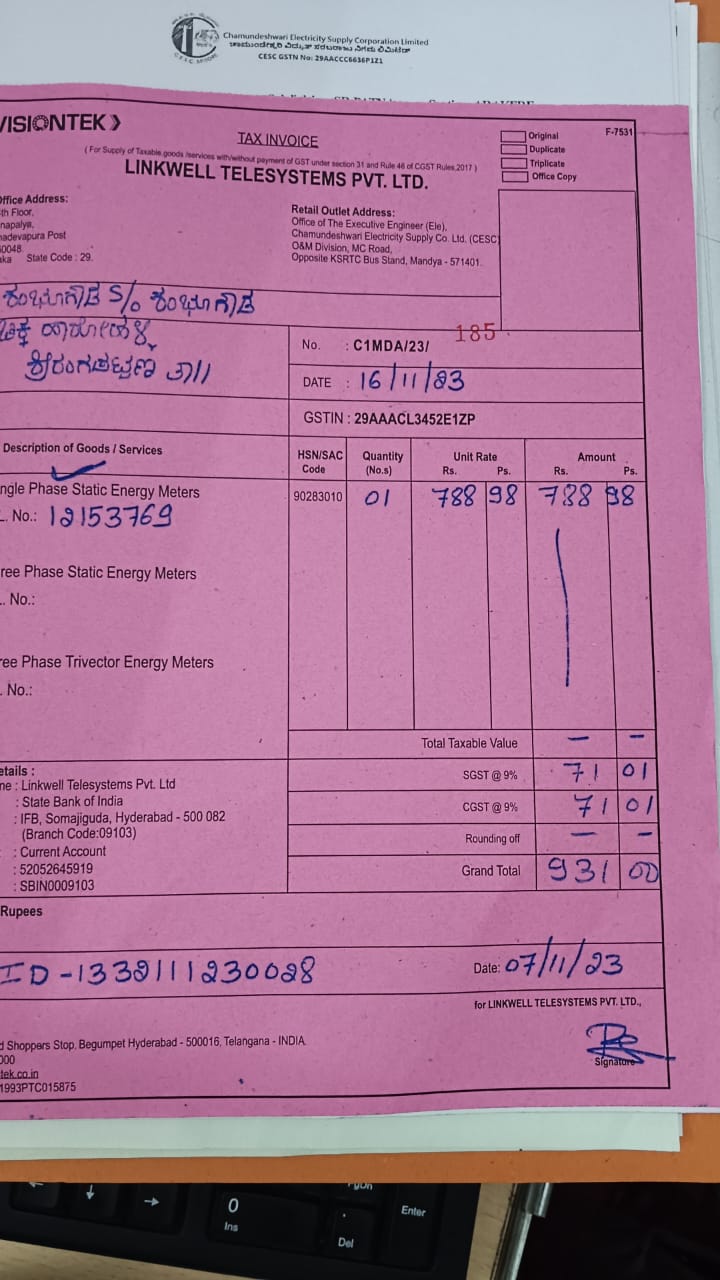 Chamundeshwari Electricity Supply Corporation Limited
ಚಾಮುಂಡೇಶ್ವರಿ ವಿದ್ಯುತ್ ಸರಬರಾಜು ನಿಗಮ ನಿಯಮಿತ
CESC GSTN No: 29AACCC6636P1Z1
VISIONTEK
TAX INVOICE
( For Supply of Taxable goods /services with/without payment of GST under section 31 and Rule 46 of CGST Rules,2017 )
LINKWELL TELESYSTEMS PVT. LTD.
F-7531
Original
Duplicate
Triplicate
Office Copy
ffice Address:
th Floor,
napalya,
adevapura Post
0048.
aka State Code : 29.
Retail Outlet Address:
Office of The Executive Engineer (Ele),
Chamundeshwari Electricity Supply Co. Ltd. (CESC)
O&M Division, MC Road,
Opposite KSRTC Bus Stand, Mandya - 571401.
S/o
ಶ್ರೀರಂಗಪಟ್ಟಣ ತಾ//
No. : C1MDA/23/ 185
DATE : 16/11/23
GSTIN : 29AAACL3452E1ZP
Description of Goods / Services HSN/SAC Code Quantity (No.s) Unit Rate Rs. Ps. Amount Rs. Ps.
ngle Phase Static Energy Meters 90283010 01 788 98 788 98
. No.: 12153769
ree Phase Static Energy Meters
. No.:
ree Phase Trivector Energy Meters
. No.:
Total Taxable Value — —
SGST @ 9% 71 01
CGST @ 9% 71 01
Rounding off — -
Grand Total 931 00
etails :
ne : Linkwell Telesystems Pvt. Ltd
: State Bank of India
: IFB, Somajiguda, Hyderabad - 500 082
(Branch Code:09103)
: Current Account
: 52052645919
: SBIN0009103
Rupees
ID -1332111230028
Date: 07/11/23
for LINKWELL TELESYSTEMS PVT. LTD.,
Signature
d Shoppers Stop, Begumpet Hyderabad - 500016, Telangana - INDIA.
000
tek.co.in
1993PTC015875
0
Ins
.
Del
PgDn
Enter